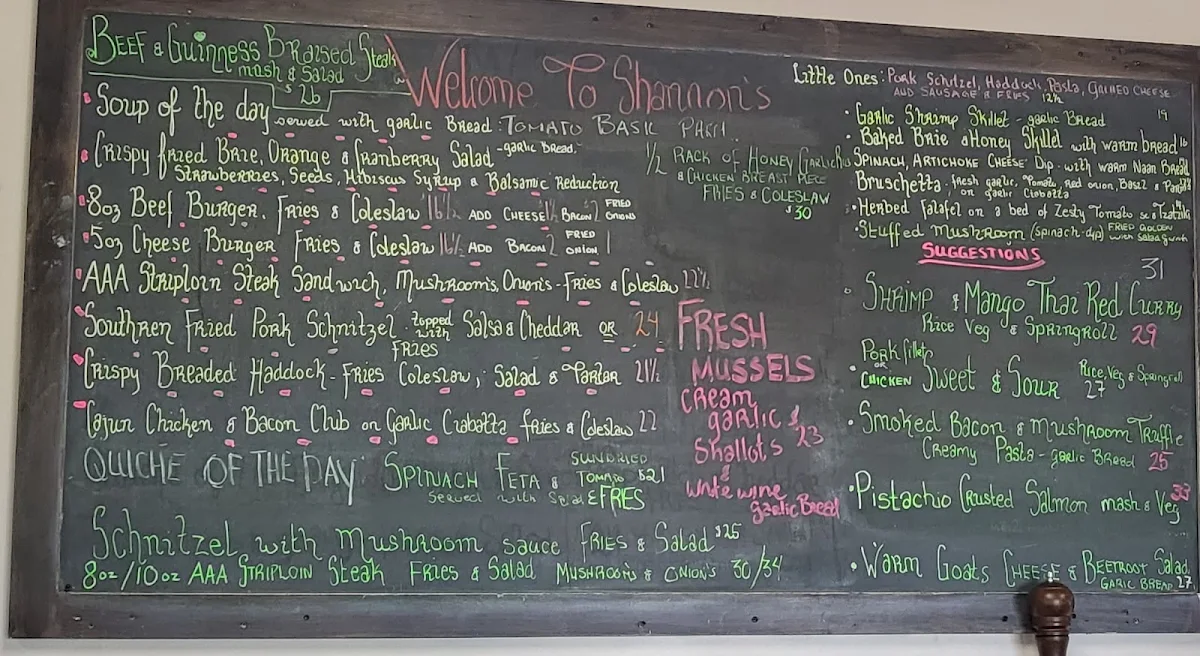 BEEF & GUINNESS BRAISED Steak
mash & Salad
$26
Welcome To Shannon's
Soup of the day served with garlic Bread: TOMATO BASIL PARM.
Crispy fried Brie, Orange & Cranberry Salad -garlic Bread.
Strawberries, Seeds, Hibiscus Syrup & Balsamic Reduction
8oz Beef Burger. Fries & Coleslaw 16½ ADD CHEESE 1½ BACON 2 FRIED ONIONS
5oz Cheese Burger Fries & Coleslaw 16½ ADD BACON 2 FRIED ONION 1
AAA Striploin Steak Sandwich, Mushroom's, Onion's - Fries & Coleslaw 22½
Southren Fried Pork Schnitzel topped with Salsa & Cheddar OR 24
FRIES
Crispy Breaded Haddock - Fries Coleslaw, Salad & Tartar 21½
Cajun Chicken & Bacon Club on Garlic Ciabatta fries & Coleslaw 22
QUICHE OF THE DAY SPINACH FETA & SUNDRIED TOMATO $21
Served with Salad & FRIES
Schnitzel with Mushroom sauce FRIES & Salad $25
8oz/10oz AAA STRIPLOIN Steak FRIES & SALAD MUSHROOM'S & ONION'S 30/34
½ RACK OF HONEY GARLIC
& CHICKEN BREAST PIECE
FRIES & COLESLAW
$30
FRESH
MUSSELS
CREAM
garlic
Shallots $23
&
White wine
garlic Bread
Little Ones: Pork Schitzel, Haddock, Pasta, GRILLED CHEESE
AND SAUSAGE & FRIES 12½
Garlic Shrimp Skillet - garlic Bread 19
Baked Brie & Honey Skillet with warm bread
SPINACH, ARTICHOKE CHEESE Dip - with warm Naan Bread
Bruschetta - fresh garlic, Tomato, Red onion, Basil &
on garlic Ciabatta
Herbed falafel on a bed of Zesty Tomato Tzatziki
Stuffed Mushroom (spinach-dip) FRIED GOLDEN
with Salad
SUGGESTIONS
31
SHRIMP & Mango Thai Red Curry
Rice Veg & SpringRoll 29
Pork fillet
OR
CHICKEN Sweet & Sour Rice, Veg & Springroll
27
Smoked Bacon & Mushroom Truffle
Creamy Pasta - garlic Bread 25
Pistachio Crusted Salmon mash & Veg 33
Warm Goats CHEESE & BEETROOT Salad
GARIC BREAD 27